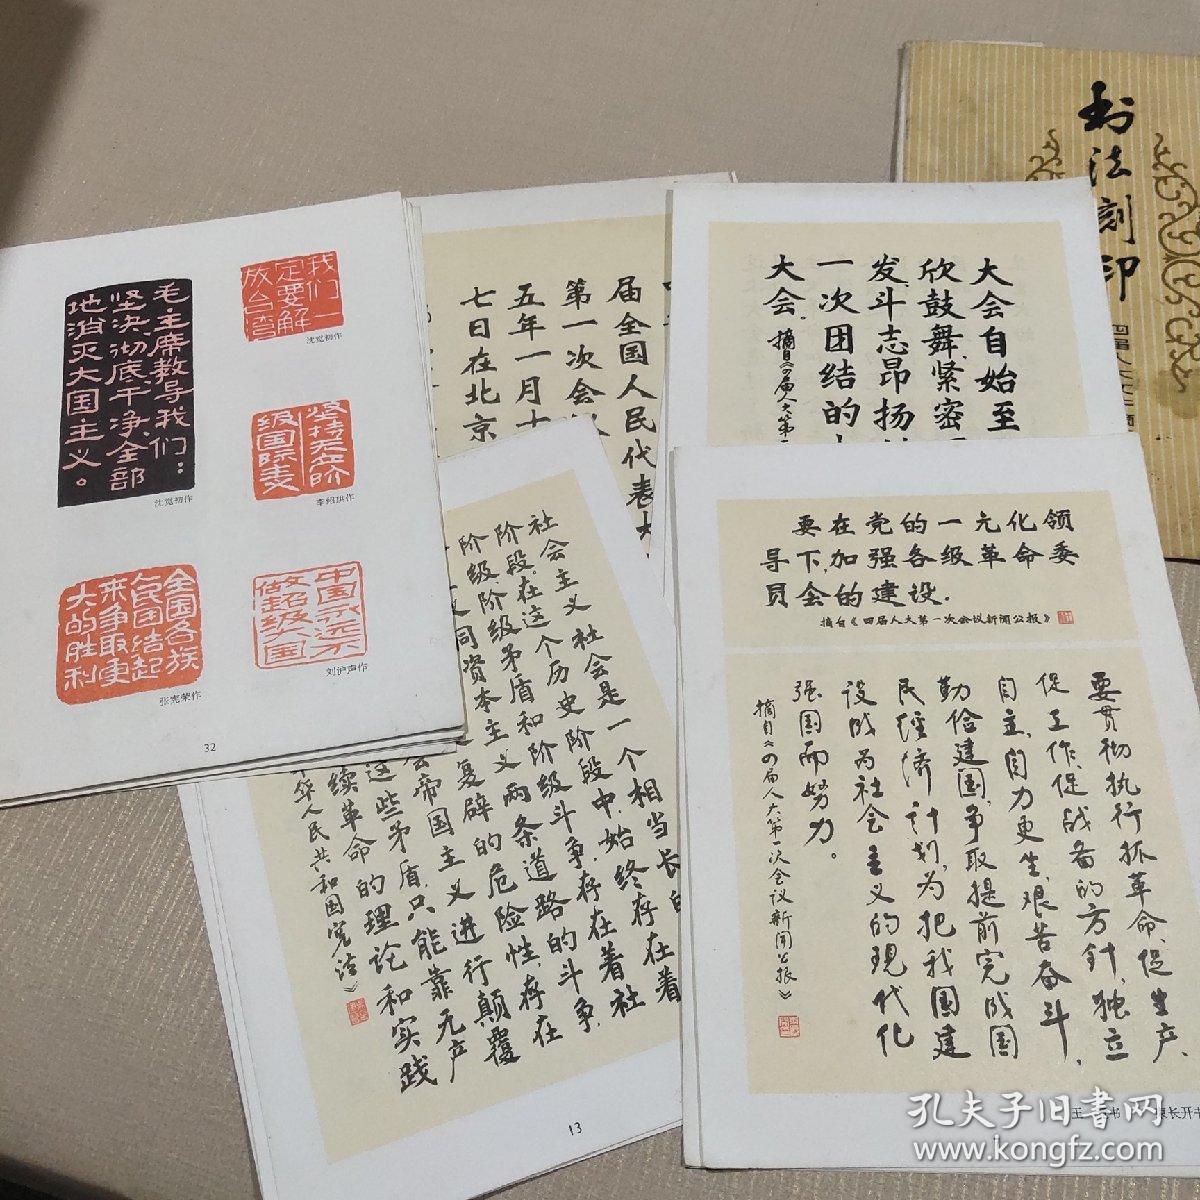 书法刻印
毛主席教导我们：
坚决彻底干净全部
地消灭大国主义。
沈宽初作
我们一
定要解
放台湾
沈宽初作
坚持无产阶
级国际主义
全国各族
人民团结起
来争取更
大的胜利
张宽荣作
中国永远不
做超级大国
刘沪声作
32
届全国人民代表大
第一次会
五年一月十
七日在北京
大会自始至
欣鼓舞，紧密
发斗志昂扬
一次团结的
大会。
摘自《四届人大第
社会主义社会是一个相当长的
阶段。在这个历史阶段中，始终存在着
阶级、阶级矛盾和阶级斗争，存在着社
同资本主义两条道路的斗争，
复辟的危险性，存在
帝国主义进行颠覆
这些矛盾，只能靠无产
续革命的理论和实践
华人民共和国宪法》
13
要在党的一元化领
导下，加强各级革命委
员会的建设．
摘自《四届人大第一次会议新闻公报》
要贯彻执行抓革命、促生产、
促工作、促战备的方针，独立
自主，自力更生，艰苦奋斗，
勤俭建国，争取提前完成国
民经济计划，为把我国建
设成为社会主义的现代化
强国而努力。
摘自《四届人大第一次会议新闻公报》
孔夫子旧书网
www.kongfz.com